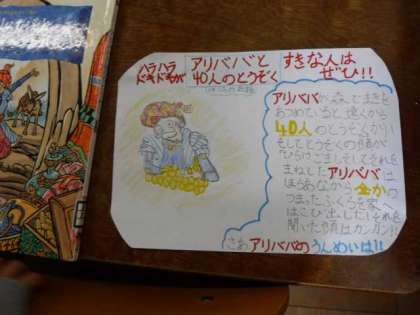 ハラハラ
ドキドキが
アリババと
40人のとうぞく
すきな人は
ぜひ!!
アリババが森でまきを
あつめていると遠くから
40人のとうぞくが!!
そしてとうぞくの頭が
ひらけごま!そしてそれを
まねしたアリババは
ほらあなから金かの
つまったふくろを家へ
はこび出した!それを
聞いた頭はカンカン!!
さあアリババのうんめいは!!